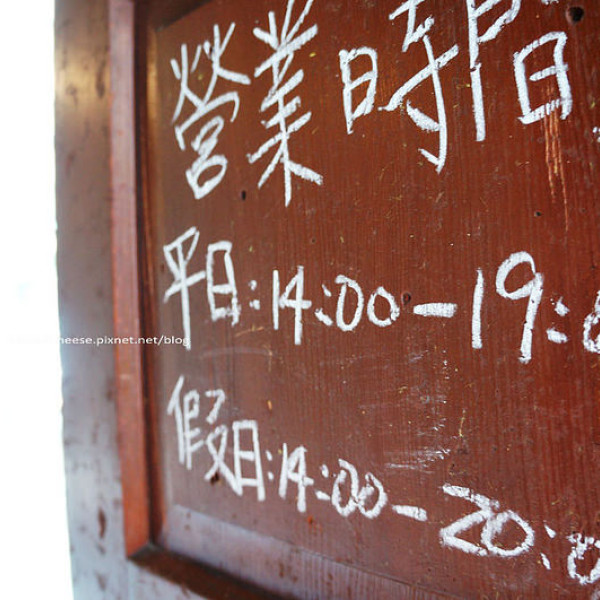 營業時間
平日:14:00-19:0
假日:14:00-20:0
heese.pixnet.net/blog